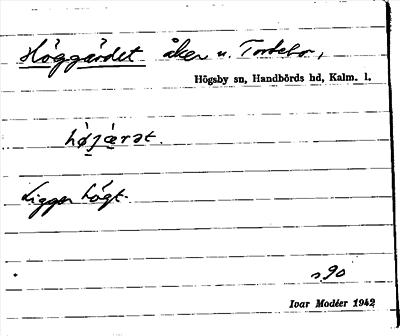 Höggärdet åker u. Torbebo,
Högsby sn, Handbörds hd, Kalm. l.
hø̀jæ̀rət.
Ligger högt.
s. 90
Ivar Modéer 1942